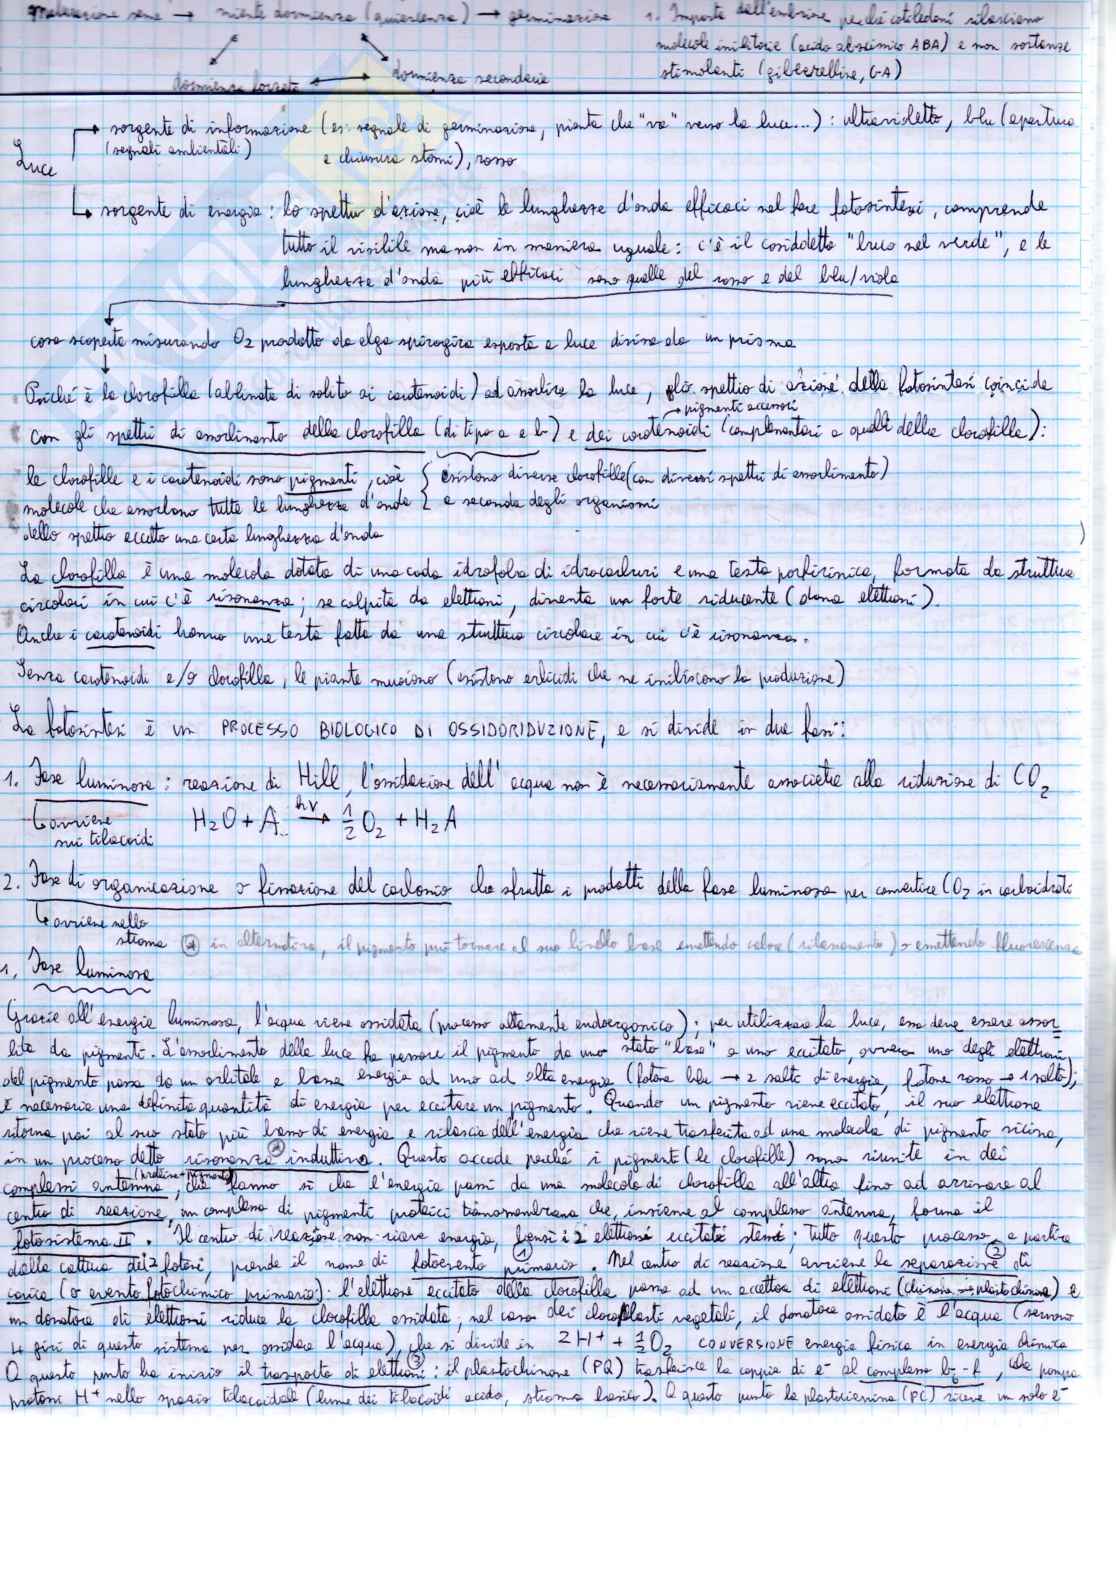 maturazione seme → niente dormienza (quiescenza) → germinazione 1. Imposta dall'embrione perché cotiledoni rilasciano
molecole inibitorie (acido abscissico ABA) e non sostanze
dormienza forzata ↔ dormienza secondaria stimolanti (gibberelline, GA)
Luce → sorgente di informazione (es: segnale di germinazione, pianta che "va" verso la luce...): ultravioletto, blu (apertura
(segnali ambientali) e chiusura stomi), rosso
→ sorgente di energia: lo spettro d'azione, cioè le lunghezze d'onda efficaci nel fare fotosintesi, comprende
tutto il visibile ma non in maniera uguale: c'è il cosiddetto "buco nel verde", e le
lunghezze d'onda più efficaci sono quelle del rosso e del blu/viola
cosa scoperta misurando O2 prodotto da alga spirogira esposta a luce divisa da un prisma
Poiché è la clorofilla (abbinata di solito ai carotenoidi) ad assorbire la luce, lo spettro di azione della fotosintesi coincide
→ pigmenti accessori
con gli spettri di assorbimento della clorofilla (di tipo a e b) e dei carotenoidi (complementari a quelli della clorofilla):
le clorofille e i carotenoidi sono pigmenti, cioè { esistono diverse clorofille (con diversi spettri di assorbimento)
molecole che assorbono tutte le lunghezze d'onda { a seconda degli organismi
dello spettro eccetto una certa lunghezza d'onda
La clorofilla è una molecola dotata di una coda idrofoba di idrocarburi e una testa porfirinica, formata da struttura
circolari in cui c'è risonanza; se colpita da elettroni, diventa un forte riducente (dona elettroni).
Anche i carotenoidi hanno una testa fatta da una struttura circolare in cui c'è risonanza.
Senza carotenoidi e/o clorofilla, le piante muoiono (esistono erbicidi che ne inibiscono la produzione)
La fotosintesi è un PROCESSO BIOLOGICO DI OSSIDORIDUZIONE, e si divide in due fasi:
1. Fase luminosa: reazione di Hill, l'ossidazione dell'acqua non è necessariamente associata alla riduzione di CO2
↳ avviene sui tilacoidi H2O + A hν→ 1/2 O2 + H2A
2. Fase di organicazione o fissazione del carbonio che sfrutta i prodotti della fase luminosa per convertire CO2 in carboidrati
↳ avviene nello
stroma * in alternativa, il pigmento può tornare al suo livello base emettendo calore (rilassamento) o emettendo fluorescenza
1. Fase luminosa
Grazie all'energia luminosa, l'acqua viene ossidata (processo altamente endoergonico); per utilizzare la luce, essa deve essere assor-
bita da pigmenti. L'assorbimento della luce fa passare il pigmento da uno stato "base" a uno eccitato, ovvero uno degli elettroni
del pigmento passa da un orbitale a bassa energia ad uno ad alta energia (fotone blu → 2 salti di energia, fotone rosso → 1 salto);
è necessaria una definita quantità di energia per eccitare un pigmento. Quando un pigmento viene eccitato, il suo elettrone
ritorna poi al suo stato più basso di energia e rilascia dell'energia che viene trasferita ad una molecola di pigmento vicina,
in un processo detto risonanza * induttiva. Questo accade perché i pigmenti (le clorofille) sono riuniti in dei
(proteine+pigmenti)
complessi antenna, che fanno sì che l'energia passi da una molecola di clorofilla all'altra fino ad arrivare al
centro di reazione, un complesso di pigmenti proteici transmembrana che, insieme al complesso antenna, forma il
fotosistema II. Il centro di reazione non riceve energia, bensì i 2 elettroni eccitati stessi; tutto questo processo, a partire
dalla cattura dei 2 fotoni, prende il nome di fotoevento primario ①. Nel centro di reazione avviene la separazione ② di
carica (o evento fotochimico primario): l'elettrone eccitato della clorofilla passa ad un accettore di elettroni (chinone → plastochinone) e
un donatore di elettroni riduce la clorofilla ossidata; nel caso dei cloroplasti vegetali, il donatore ossidato è l'acqua (servono
4 giri di questo sistema per ossidare l'acqua), che si divide in 2H+ + 1/2 O2 CONVERSIONE energia fisica in energia chimica
A questo punto ha inizio il trasporto di elettroni ③: il plastochinone (PQ) trasferisce la coppia di e- al complesso b6-f, che pompa
protoni H+ nello spazio tilacoidale (lume dei tilacoidi acido, stroma basico). A questo punto la plastocianina (PC) riceve un solo e-